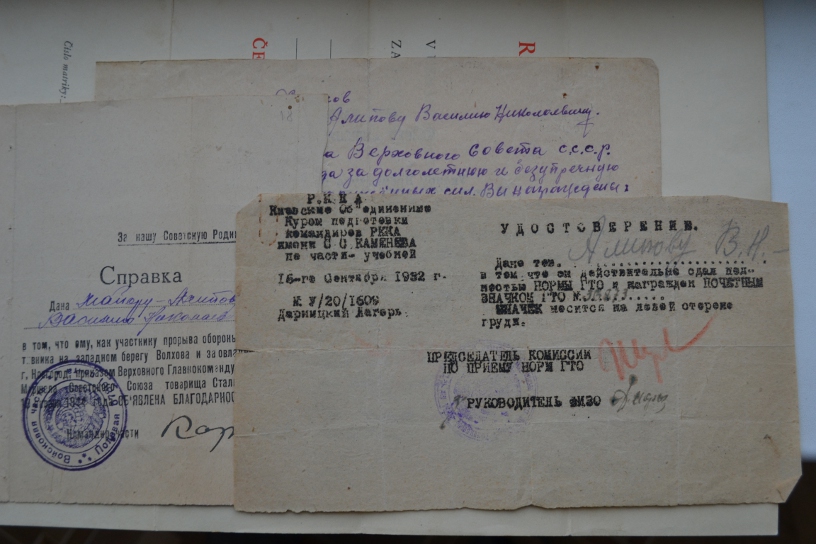 Číslo matriky:
R
V
ZA
ČE
Алипову Василию Николаевичу.
а Верховного Совета С.С.С.Р.
за долголетнюю и безупречную
сил. Вы награждены
За нашу Советскую Роди
Справка
Дана Майору Алипов
Василию Николаев
в том, что ему, как участнику прорыва оборон
на западном берегу Волхова и за овла
г. Новгород, приказом Верховного Главнокоманду
Маршала Советского Союза товарища Стал
ОБ'ЯВЛЕНА БЛАГОДАРНОС
части
Войсковая часть
Полевая
Р.К.К.А.
Киевские Об'единенные
Курсы подготовки
командиров РККА
имени С.С.КАМЕНЕВА
по части- учебной
16-го Сентября 1932 г.
№ У/20/1609
Дарницкий Лагерь.
УДОСТОВЕРЕНИЕ.
Дано тов. Алипову В.Н.
в том что он действительно сдал пол-
ностью НОРМЫ ГТО и награжден ПОЧЕТНЫМ
ЗНАЧКОМ ГТО №
ЗНАЧЕК носится на левой стороне
груди.
ПРЕДСЕДАТЕЛЬ КОМИССИИ
ПО ПРИЕМУ НОРМ ГТО
РУКОВОДИТЕЛЬ ФИЗО